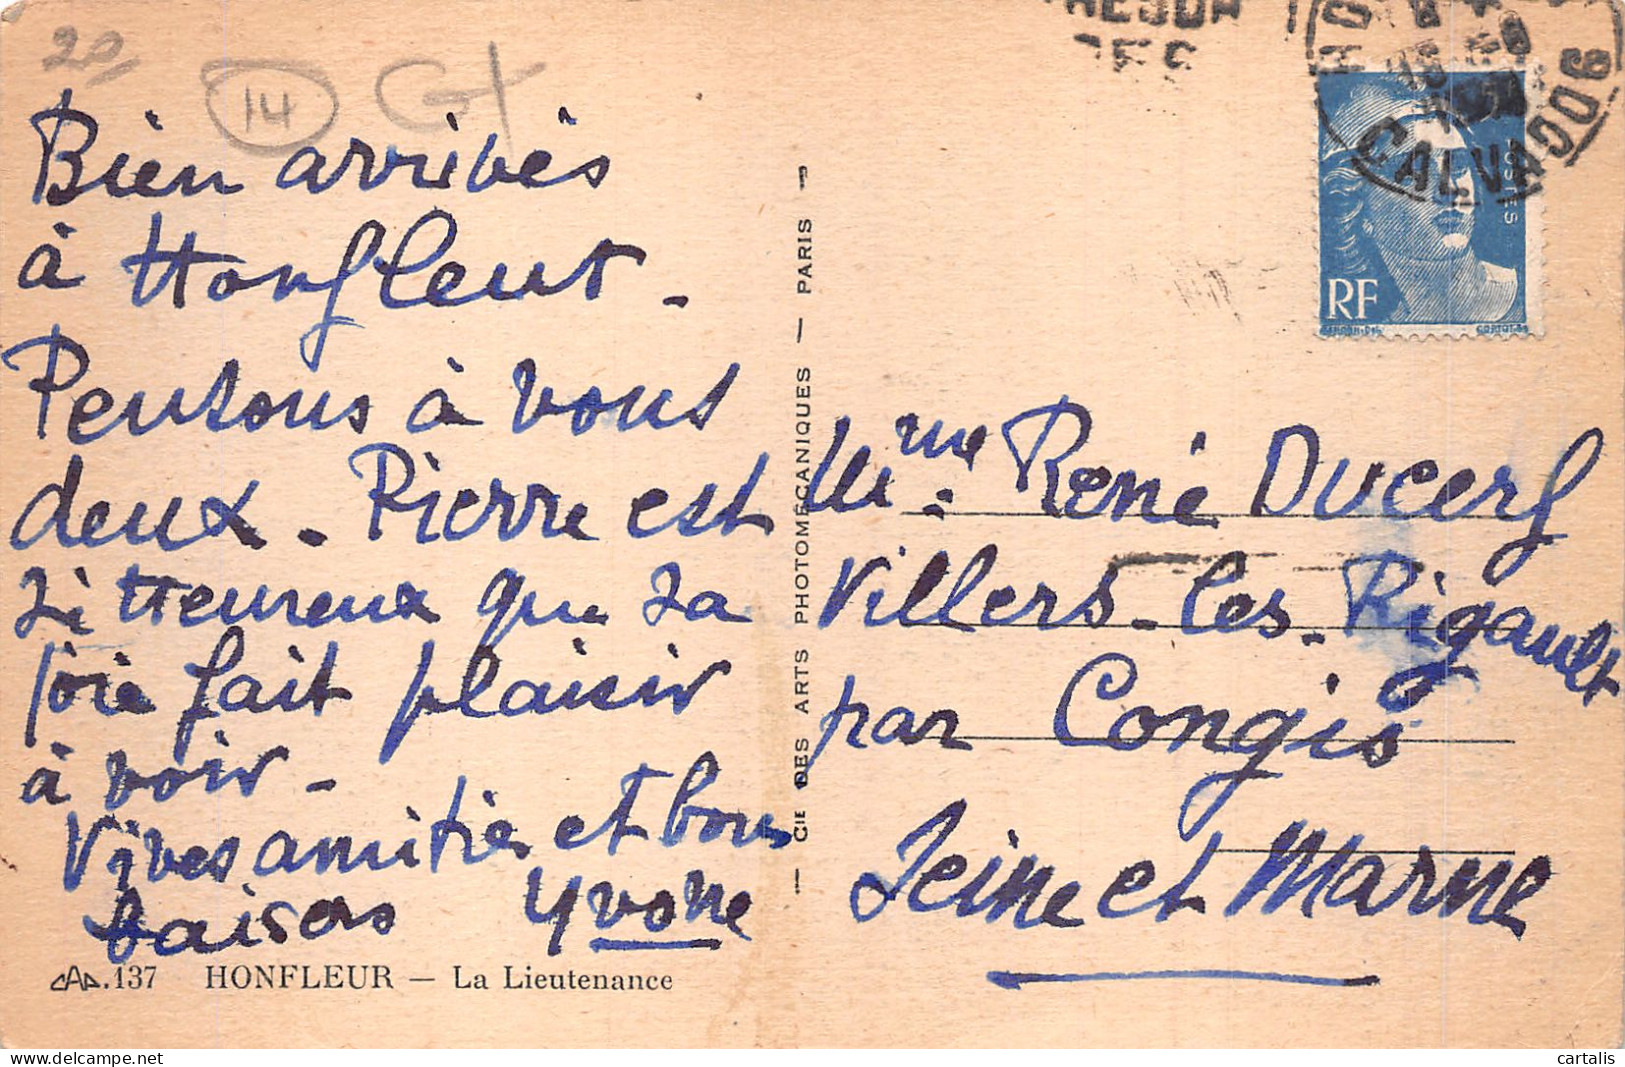 20,
14
Bien arrivés
à Honfleur -
Pensons à vous
deux. Pierre est
si heureux que sa
joie fait plaisir
à voir -
Vives amitiés et bons
baisers Yvonne
CAP. 137 HONFLEUR — La Lieutenance
— CIE DES ARTS PHOTOMÉCANIQUES — PARIS —
CALVADOS
POSTES
RF
Mme. René Ducerf
Villers-les-Rigault
par Congis
Seine et Marne
cartalis